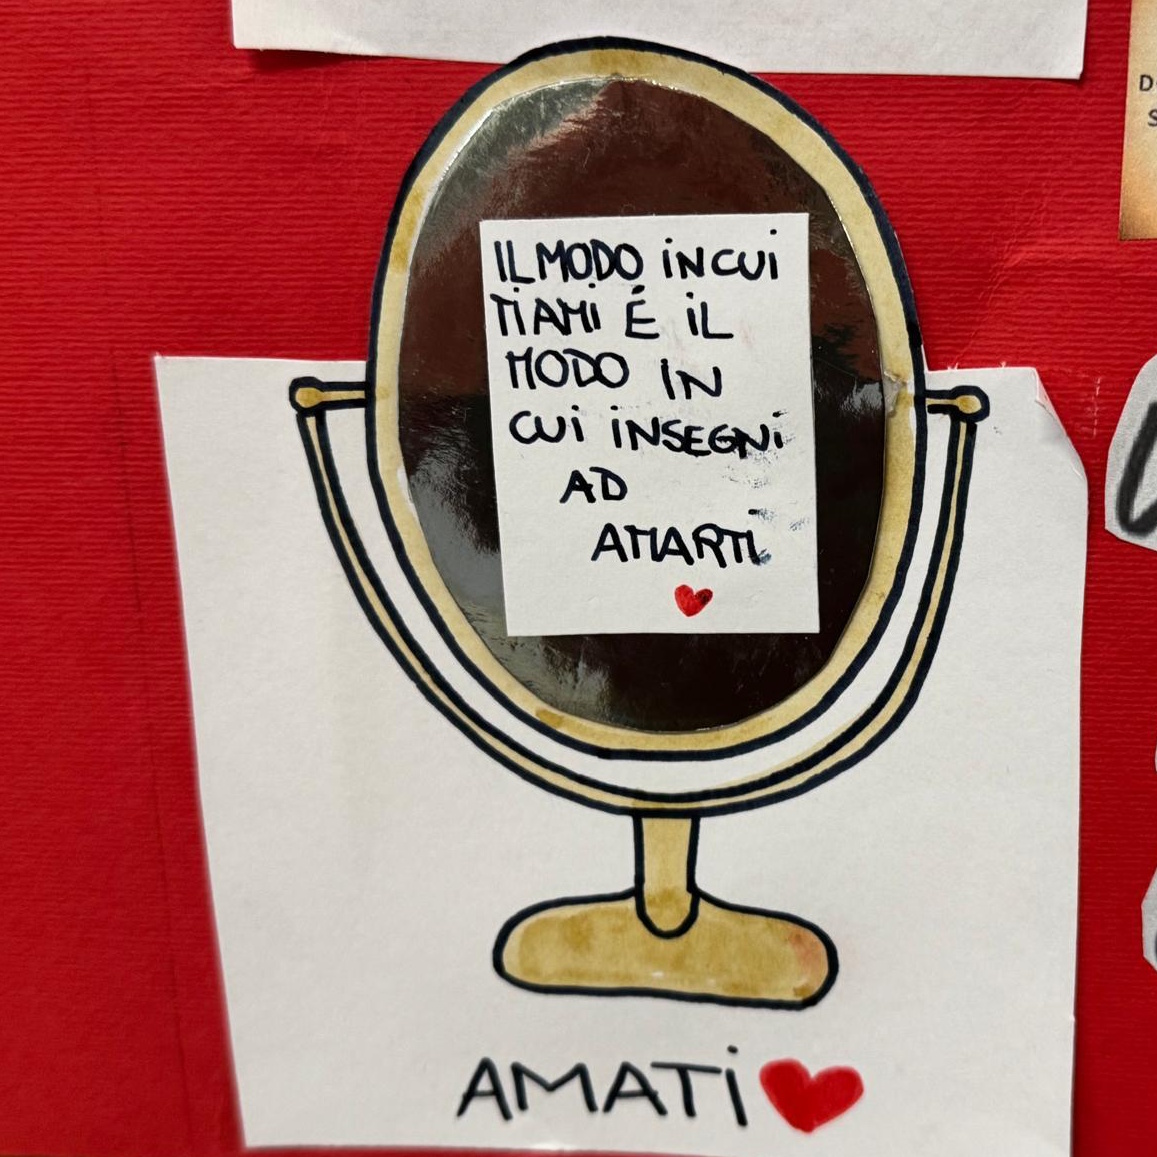 IL MODO iN CUi
Ti AMi É iL
MODO iN
CUi iNSEGNi
AD
AMARTi
AMATi